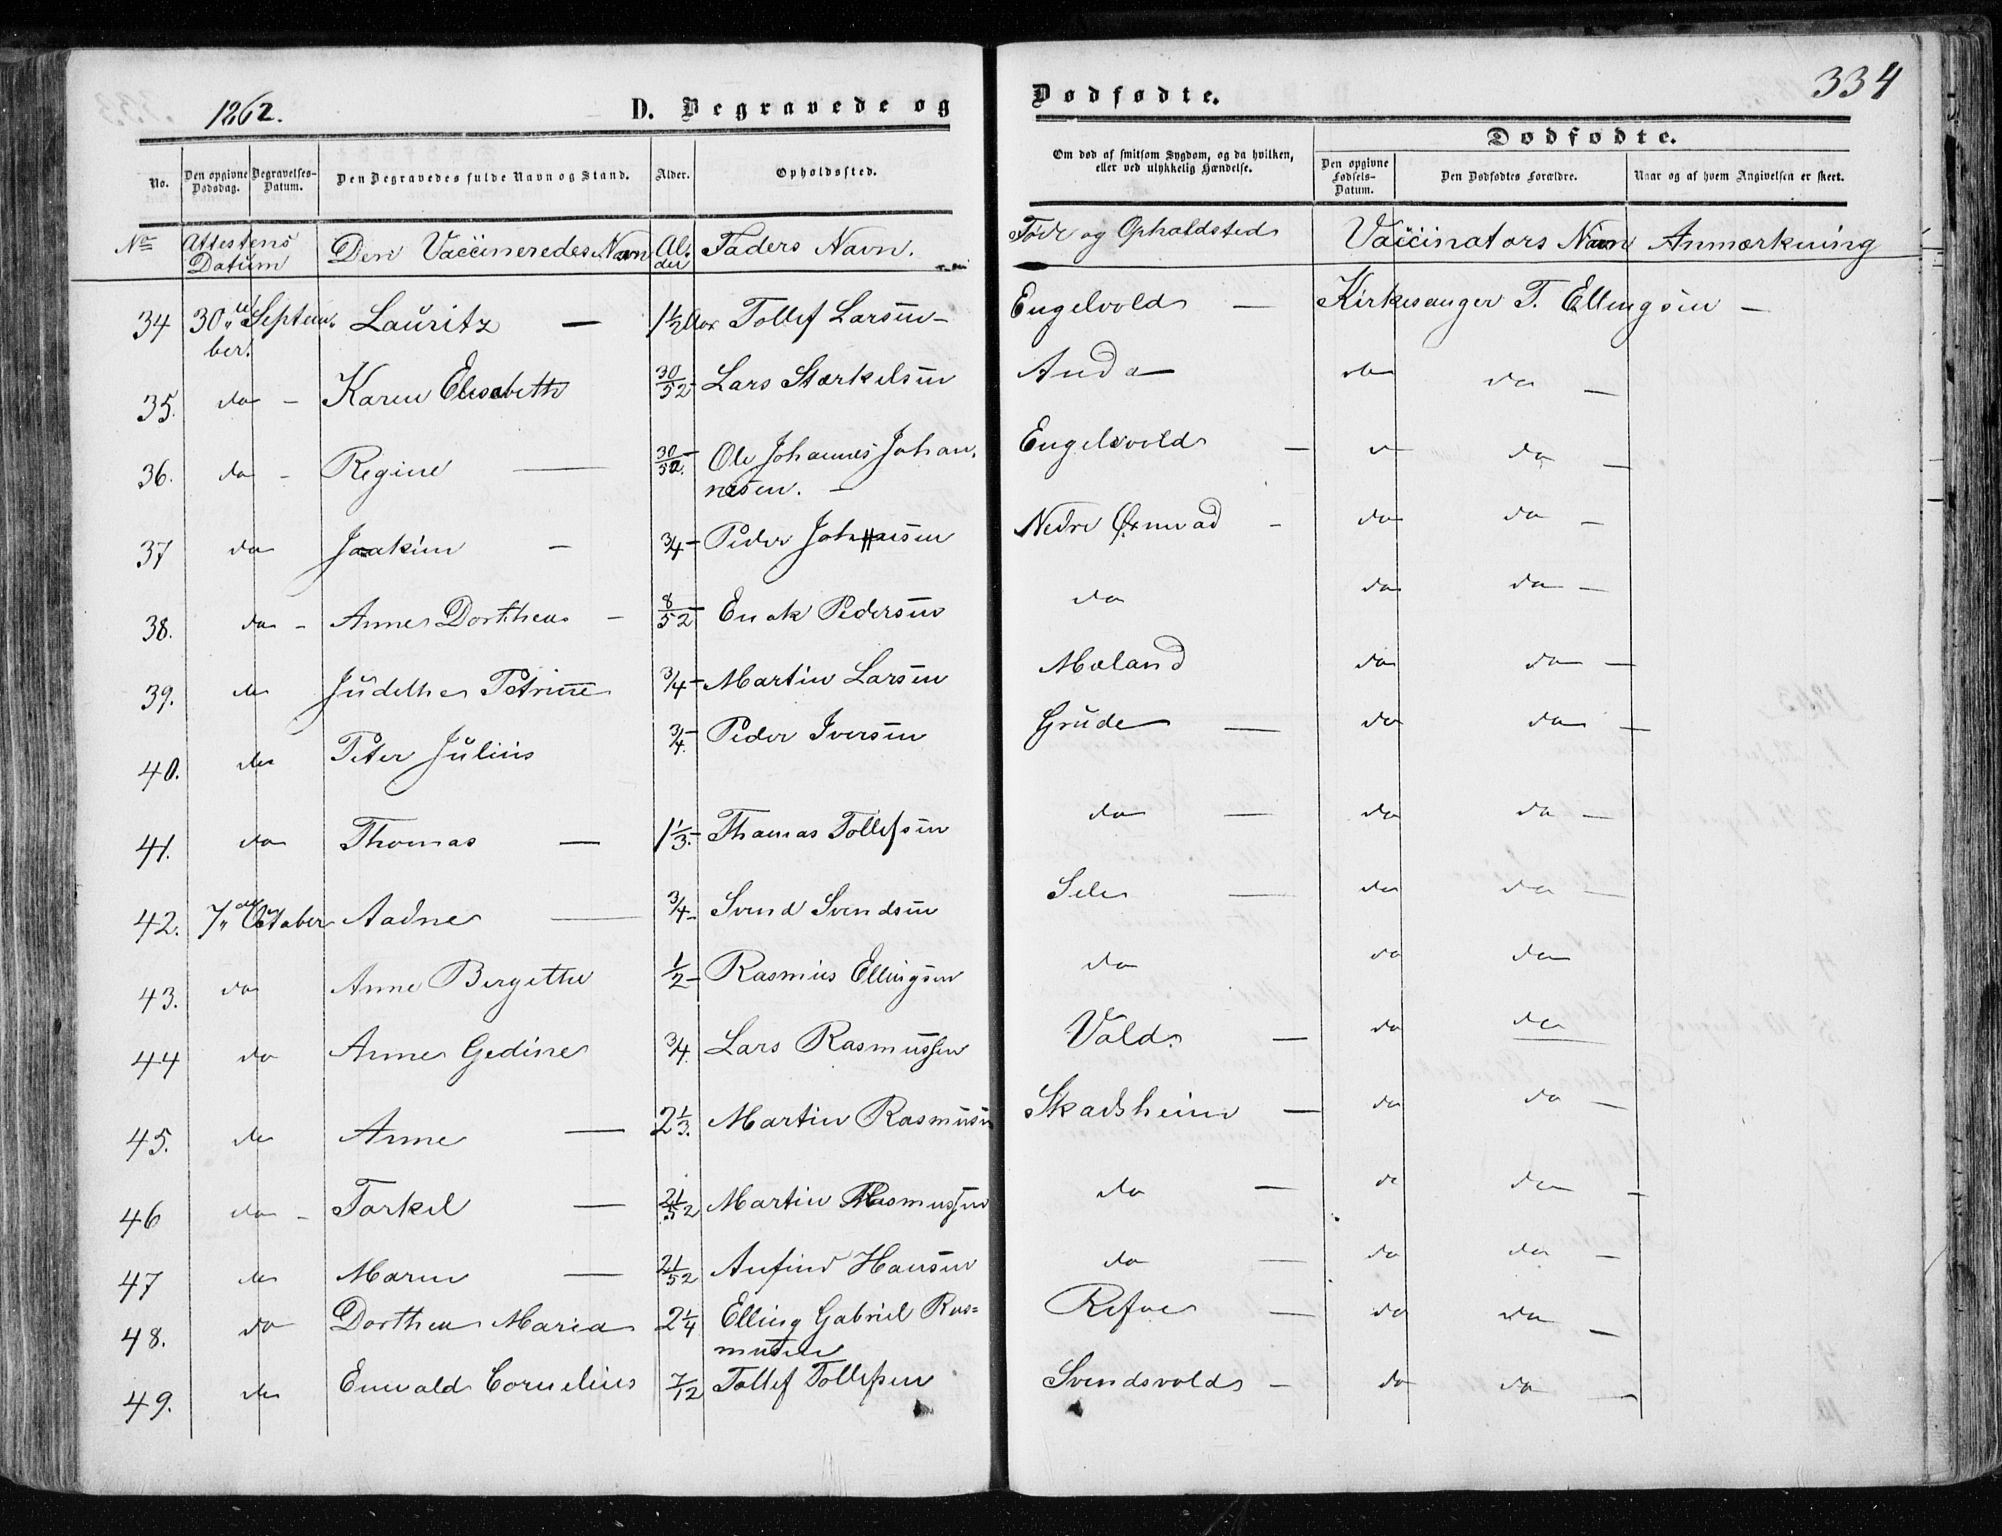 1862.
D. Begravede og
Dødfødte.
334
No.
Den opgivne Dødsdag.
Begravelses-Datum.
Den Begravedes fulde Navn og Stand.
Alder.
Opholdssted.
Om død af smitsom Sygdom, og da hvilken, eller ved ulykkelig Hændelse.
Dødfødte.
Den opgivne Fødsels-Datum.
Den Dødfødtes Forældre.
Naar og af hvem Angivelsen er skeet.
No Attestens Datum Den Vaccineredes Navn Alder Faders Navn. Føde og Opholdsted Vaccinators Navn Anmærkning
34 30te September. Lauritz — 1½ Aar Tollef Larsen – Engelvold — Kirkesanger T. Ellingsen —
35. do – Karen Elisabeth 30/52 – Lars Stærkelsen Anda do do —
36. do – Regine — 30/52. Ole Johannes Johannesen. – Engelsvold – do do —
37 do Joakim – ¾ – Peder Johnsen Nedre Øxnevad – do do –
38. do – Anne Dorthea – 8/52 – Enok Pedersen do do do –
39. do Judithe Petrine ¾ – Martin Larsen Mæland do do –
40. do Peter Julius ¾. – Peder Iversen Grude — do do –
41. do Thomas — 1⅓. – Thomas Tollefsen do — do do –
42. 7de October Aadne — ¾ – Svend Svendsen Sele — do do –
43. do Anne Bergitte ½ – Rasmus Ellingsen do do do
44 do Anne Gedine ¾. Lars Rasmussen Vold. — do do —
45. do Anne — 2⅓. Martin Rasmusen Skadsheim — do do –
46 do – Torkel — 21/52 Martin Rasmussen do — do do –
47 do Maren — 21/52 Anfind Hansen do — do do –
48. do Dorthea Maria 2¼ Elling Gabriel Rasmusen Refve — do do –
49. do Enevald Cornelius 7/12 Tollef Tollefsen Svendsvold – do do –